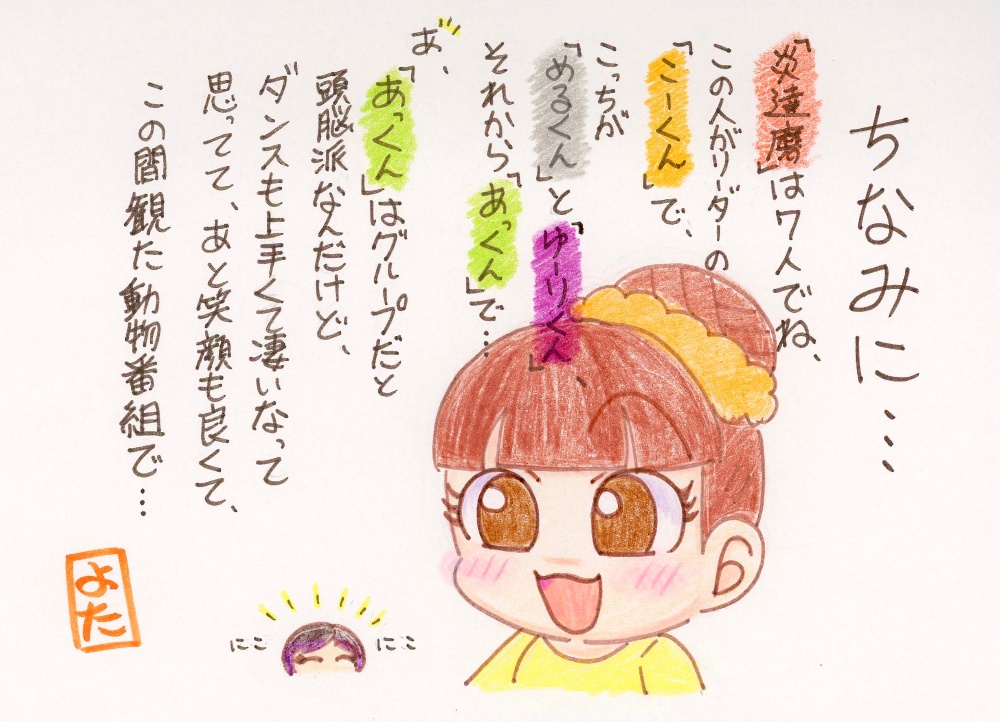 ちなみに…
「炎達磨」は7人でね、
この人がリーダーの
「こーくん」で、
こっちが
「めるくん」と「ゆーりくん」、
それから「あっくん」で…
あ、
「あっくん」はグループだと
頭脳派なんだけど、
ダンスも上手くて凄いなって
思ってて、あと笑顔も良くて、
この間観た動物番組で…
にこ
にこ
よた